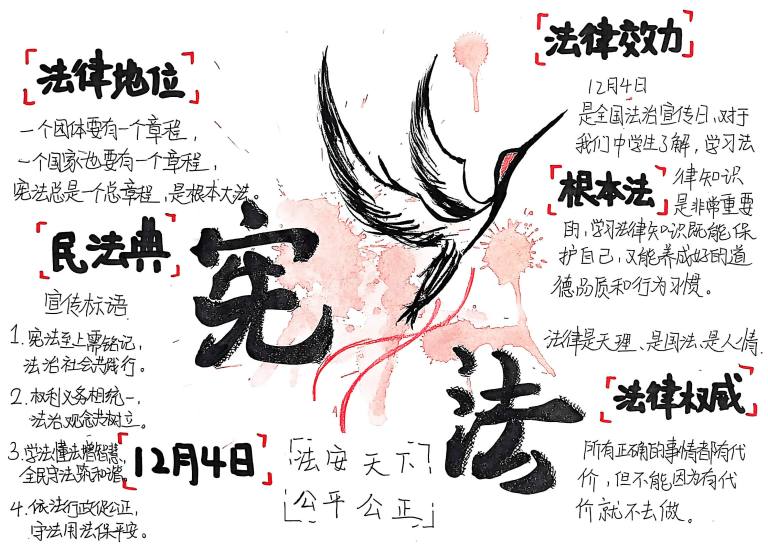 法律地位
一个团体要有一个章程，
一个国家也要有一个章程，
宪法总是一个总章程，是根本大法。
民法典
宣传标语
1.宪法至上需铭记，
法治社会共践行。
2.权利义务相统一，
法治观念共树立。
3.学法懂法增智慧，
全民守法筑和谐。
4.依法行政促公正，
守法用法保平安。
宪
法
12月4日
法安天下
公平公正
法律效力
12月4日
是全国法治宣传日，对于
我们中学生了解，学习法
根本法
律知识
是非常重要
的，学习法律知识既能保
护自己，又能养成好的道
德品质和行为习惯。
法律是天理、是国法、是人情.
法律权威
所有正确的事情都有代
价，但不能因为有代
价就不去做。